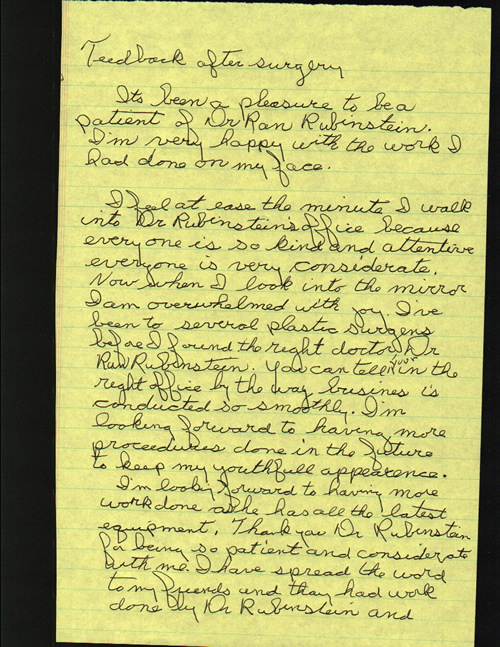 Feedback after surgery
Its been a pleasure to be a
patient of Dr Ran Rubinstein.
I'm very happy with the work I
had done on my face.
I feel at ease the minute I walk
into Dr Rubinstein's office because
everyone is so kind and attentive
everyone is very considerate.
Now when I look into the mirror
I am overwhelmed with joy. I've
been to several plastic surgens
before I found the right doctor Dr
Ran Rubinstein. You can tell your in the
right office by the way busines is
conducted so smoothly. I'm
looking forward to having more
procedures done in the future
to keep my youthfull appearence.
I'm looking forward to having more
work done as he has all the latest
equipment. Thank you Dr Rubinstein
for being so patient and considerate
with me. I have spread the word
to my friends and they had work
done by Dr Rubinstein and